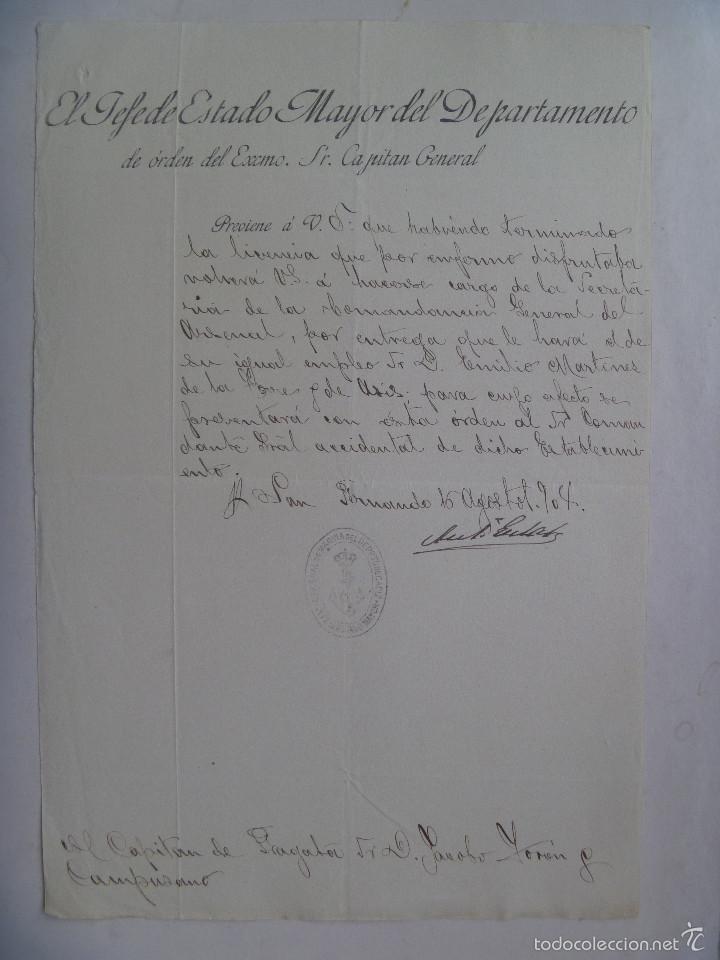 El Jefe de Estado Mayor del Departamento
de órden del Excmo. Sr. Capitan General
Previene á V. S. que habiendo terminado
la licencia que por enfermo disfrutaba
volverá V.S. á hacerse cargo de la Secreta-
ria de la Comandancia General del
Arsenal, por entrega que le hará el de
su igual empleo Sr D. Emilio Martinez
de la Torre y de Asis; para cuyo efecto se
presentará con esta órden al Sr Coman
dante Gral accidental de dicho Establecimi
ento.
San Fernando 16 Agosto 1.904.
Al Capitán de Fragata Sr D. Jacobo Torón y
Campuzano
todocoleccion.net